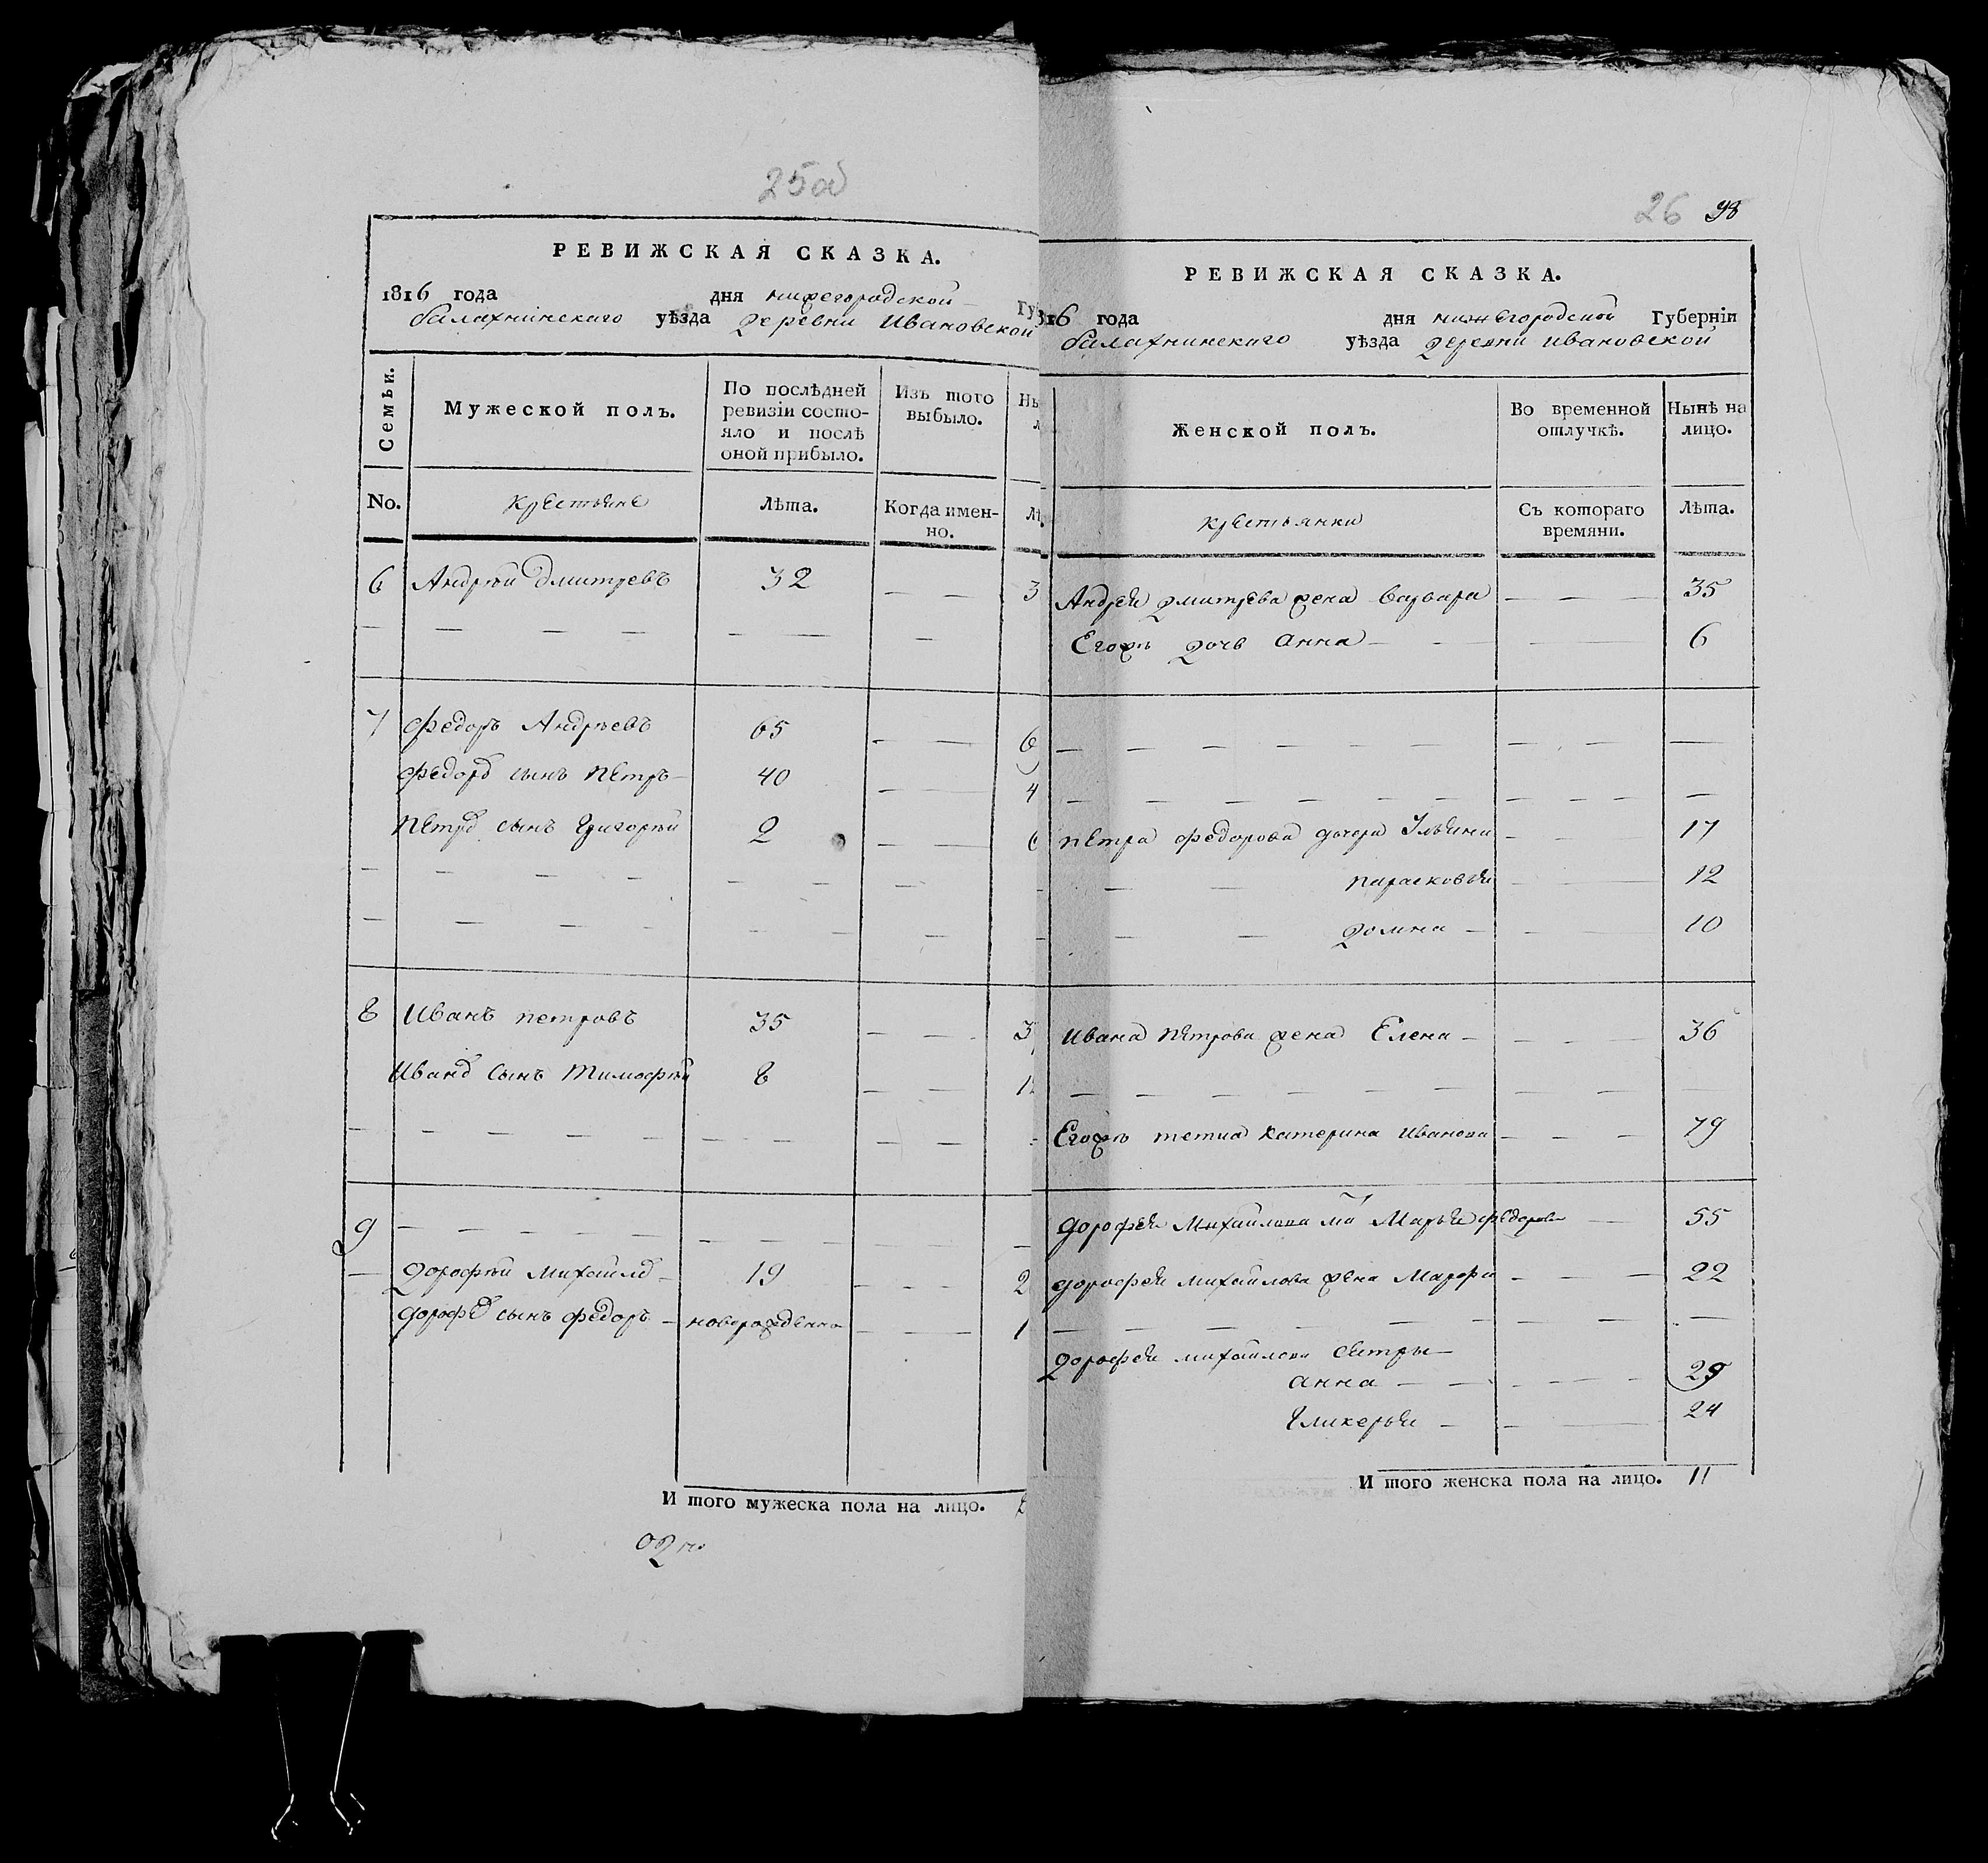 25об
РЕВИЖСКАЯ СКАЗКА.
1816 года дня нижегородской Гу
балахнинскаго уѣзда деревни Ивановской
Семьи.
Мужеской полъ.
По послѣдней ревизіи состояло и послѣ оной прибыло.
Изъ того выбыло.
Ны
No. крестьяне Лѣта. Когда именно. Лѣ
6 Андрѣй Дмитревъ 32 — — 3
— — — — — — —
7 Федоръ Андрѣевъ 65 — — 6
Федора сынъ Петръ — 40 — — 4
Петра сынъ Григорѣй 2 — —
— — — — — — —
— — — — — — —
8 Иванъ Петровъ 35 — — 3
Ивана сынъ Тимофѣй 8 — — 1
— — — — — — —
9 — — — — — — —
— Дорофѣй Михайлов — 19 — — 2
Дорофея сынъ Федоръ — новорожденно — — 1
И того мужеска пола на лицо.
26 98
РЕВИЖСКАЯ СКАЗКА.
816 года дня нижегородской Губерніи
балахнинскаго уѣзда деревни Ивановской
Женской полъ.
Во временной отлучкѣ.
Нынѣ на лицо.
крестьянки Съ котораго времяни. Лѣта.
Андрея Дмитрева жена Варвара — — — 35
Егожъ дочь Анна — — — 6
— — — — — — — — —
— — — — — — — — — —
Петра Федорова дочери Ульяна — — 17
— — Парасковья — — 12
— — Домна — — — 10
Ивана Петрова жена Елена — — — — 36
— — — — — — — — —
Егожъ тетка Катерина Иванова — — — 79
Дорофея Михайлова ма Марья Федорова — 55
Дорофея Михайлова жена Марфа — — — 22
— — — — — — — — —
Дорофея Михайлова сестры —
Анна — — — — — 29
Гликерья — — — 24
И того женска пола на лицо. 11